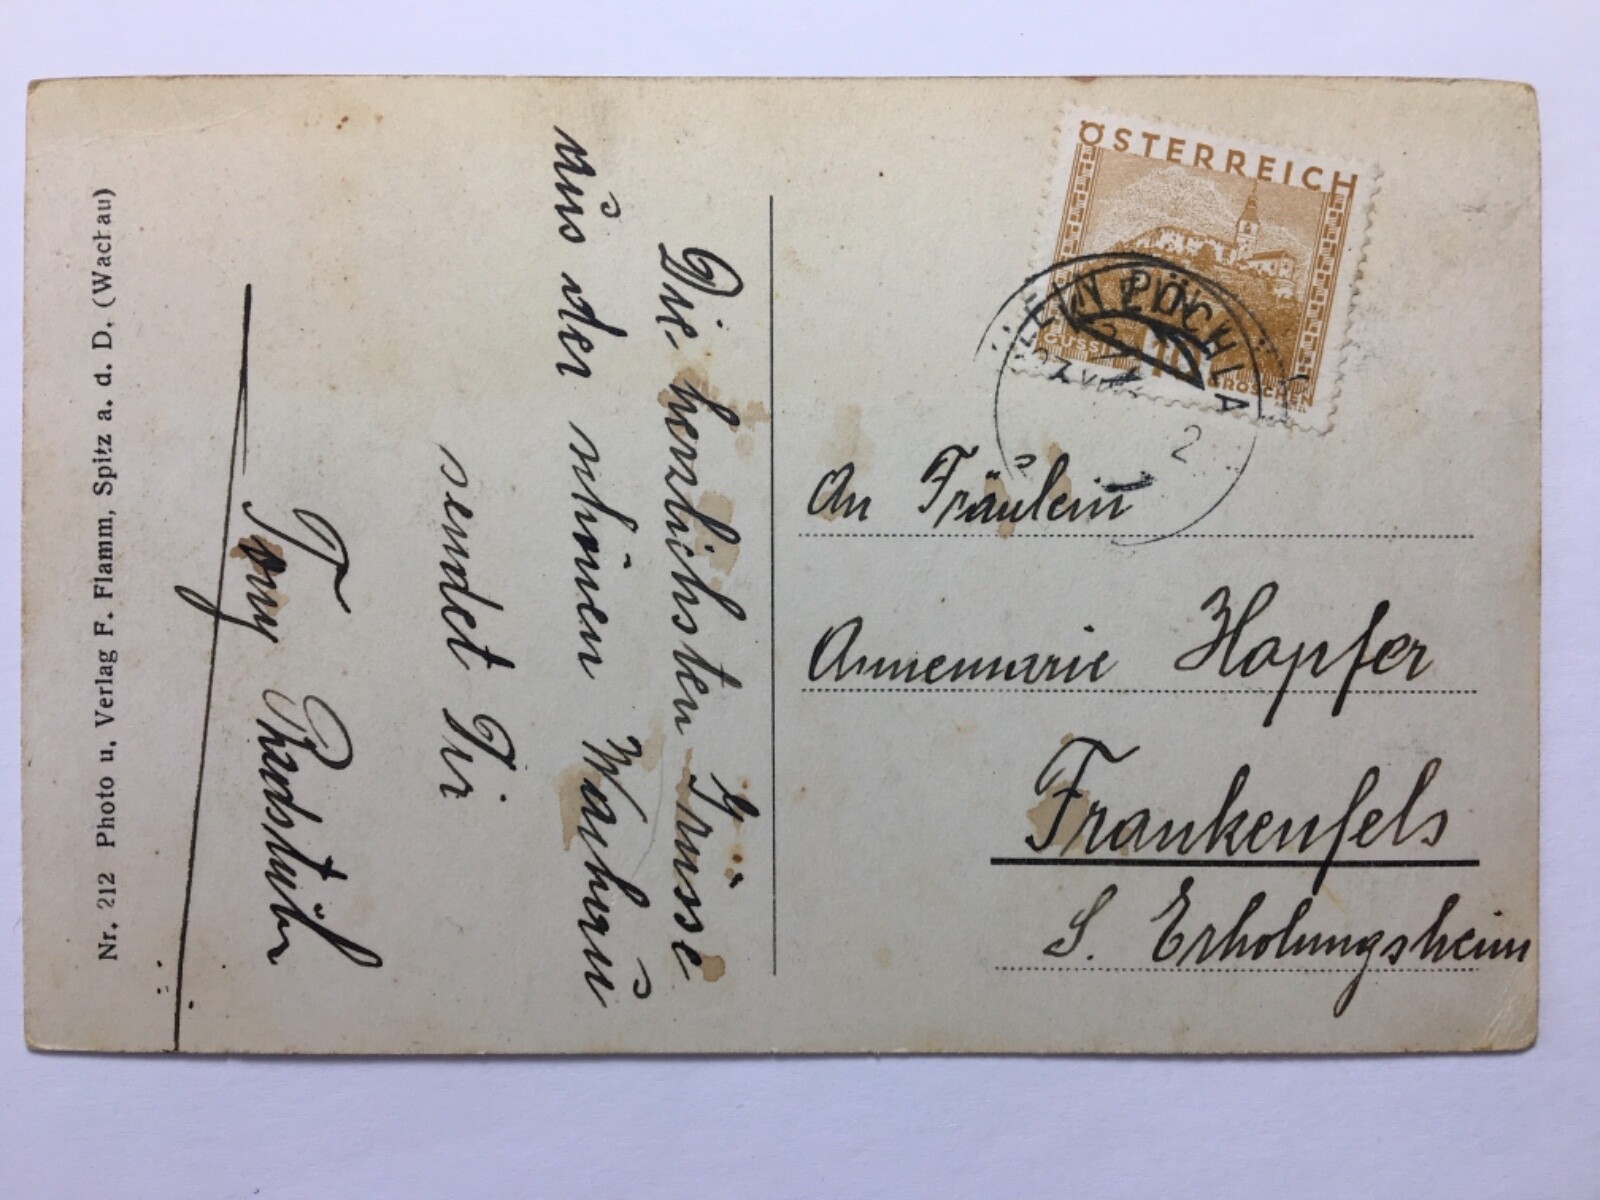 Nr. 212 Photo u. Verlag F. Flamm, Spitz a. d. D. (Wachau)
Die herzlichsten Grüsse
aus der schönen Wachau
sendet Dir
Tony
ÖSTERREICH
GÜSSING
10
GROSCHEN
KLEIN PÖCHLA
An Fräulein
Annemarie Hopfer
Frankenfels
S. Erholungsheim